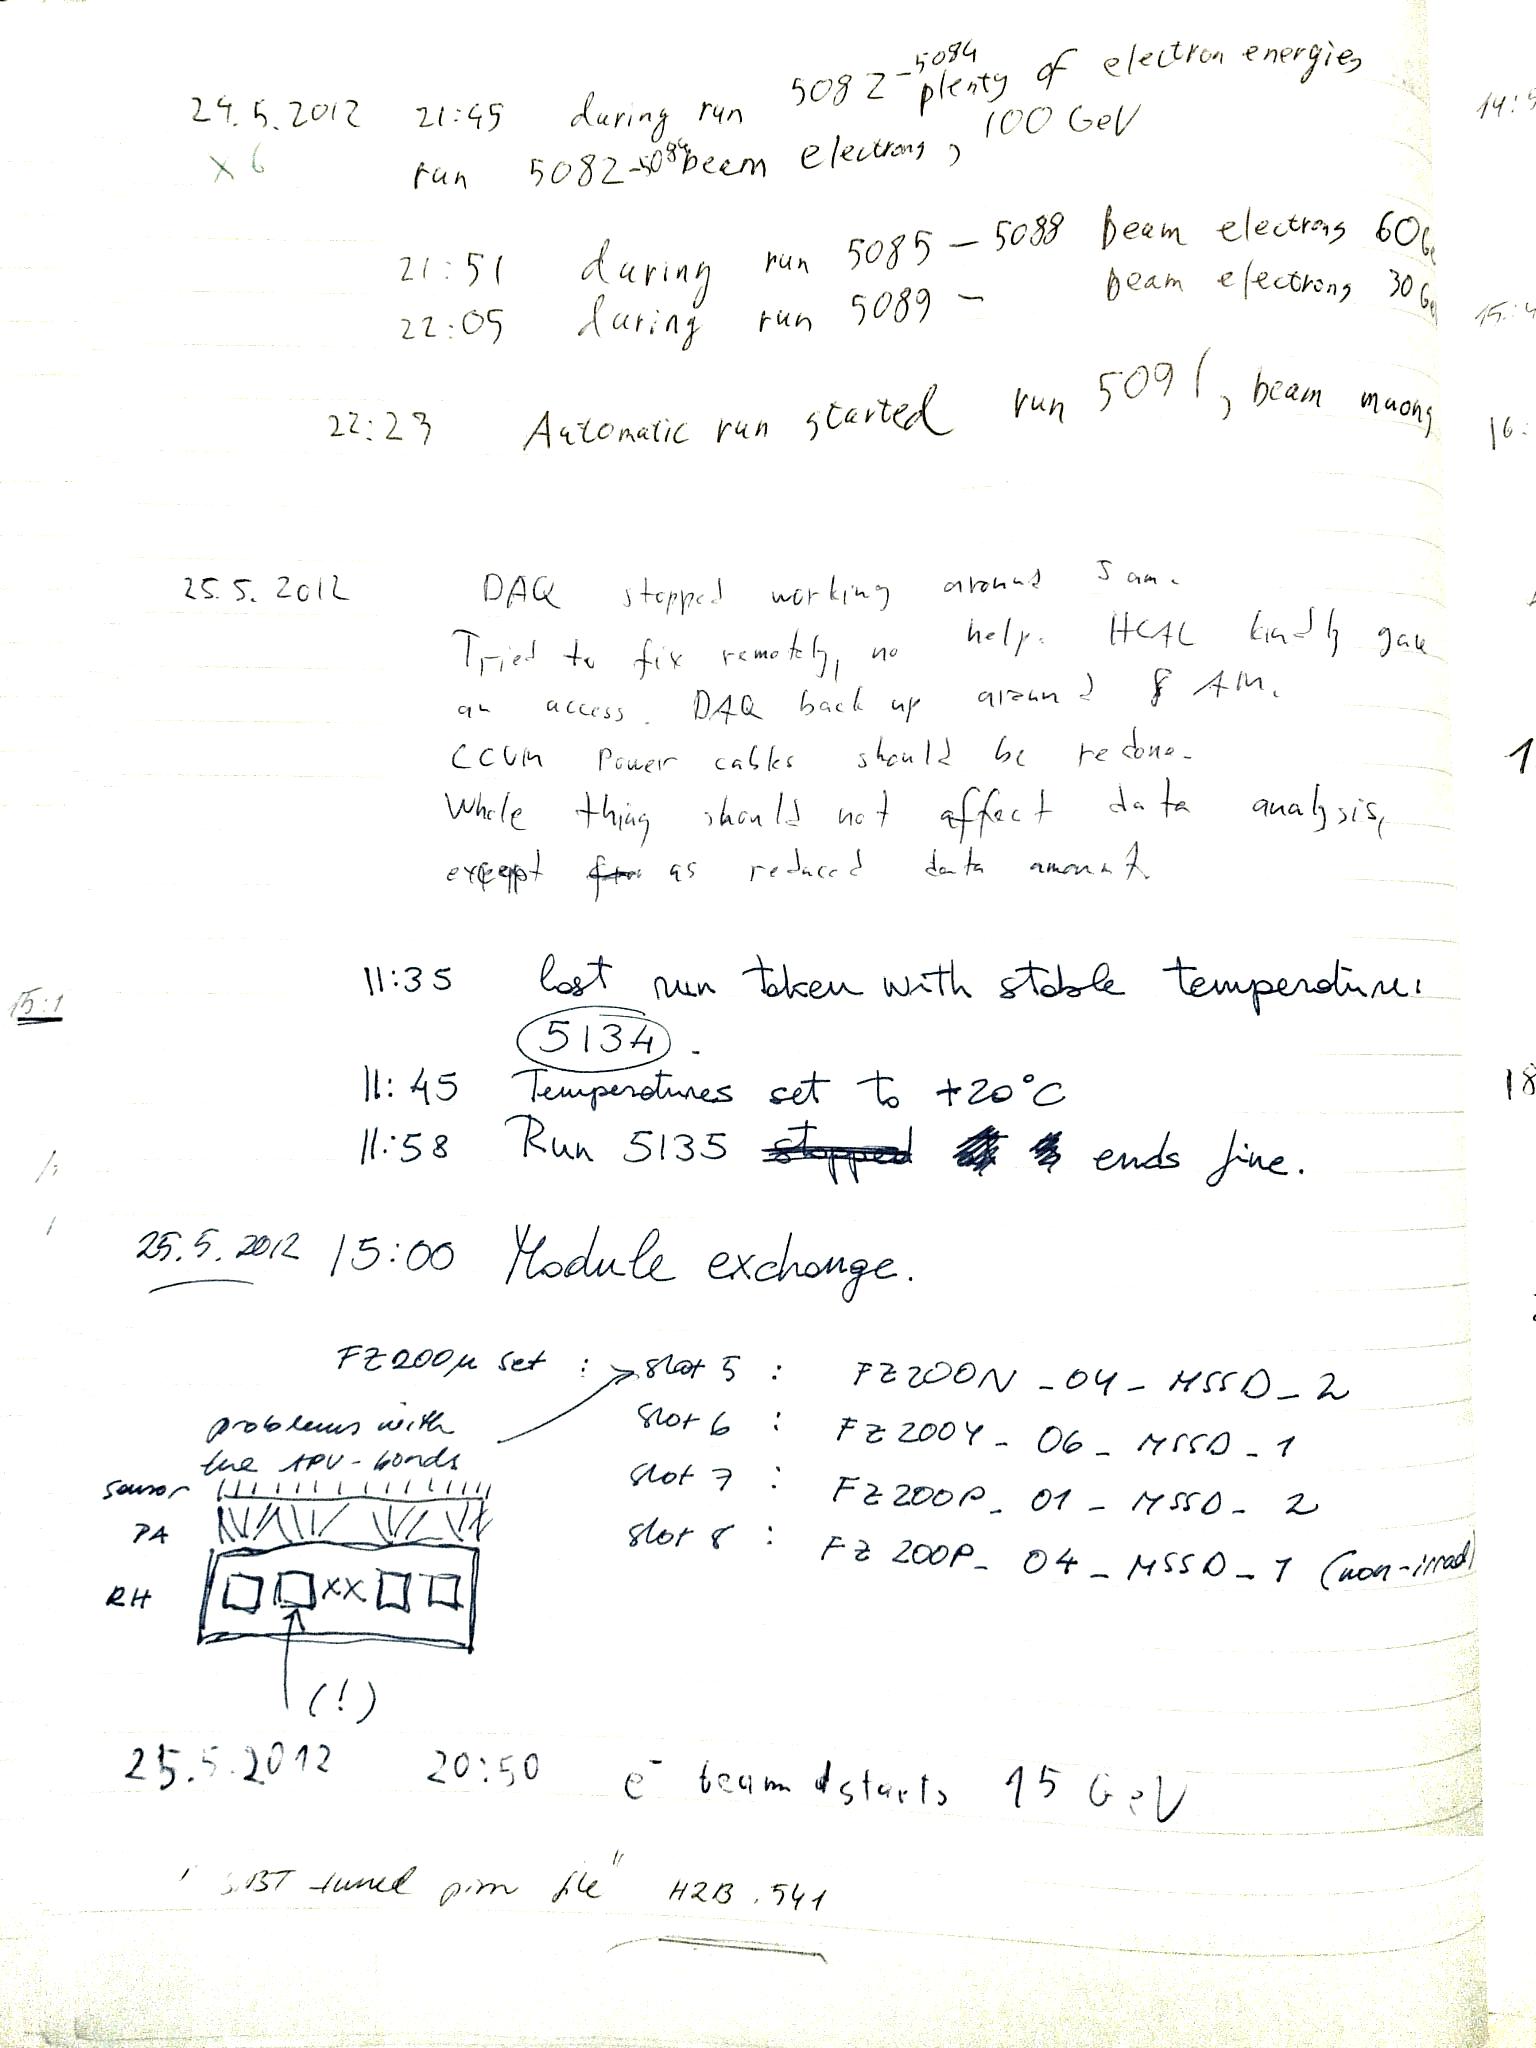 24.5.2012 21:45 during run 5082-5084 plenty of electron energies
x6 run 5082-5084 beam electrons, 100 GeV
21:51 during run 5085 - 5088 beam electrons 60Ge
22:05 during run 5089 - beam electrons 30 Ge
22:23 Automatic run started run 5091, beam muons
25.5.2012 DAQ stopped working around 5 am.
Tried to fix remotely, no help. HCAL kindly gave
an access. DAQ back up around 8 AM.
CCUM Power cables should be redone.
Whole thing should not affect data analysis,
except as reduced data amount.
11:35 last run taken with stable temperature:
5134.
11:45 Temperatures set to +20°C
11:58 Run 5135 stopped ends fine.
25.5.2012 15:00 Module exchange.
FZ200μ set : slot 5 : FZ200N_04_MSSD_2
slot 6 : FZ200Y_06_MSSD_1
slot 7 : FZ200P_01_MSSD_2
slot 8 : FZ200P_04_MSSD_1 (non-irrad)
problems with
the APV-bonds
sensor
PA
RH xx
(!)
25.5.2012 20:50 e⁻ beam starts 15 GeV
tuned file" H2B.541
15:1
14:5
15:4
16:
1
18